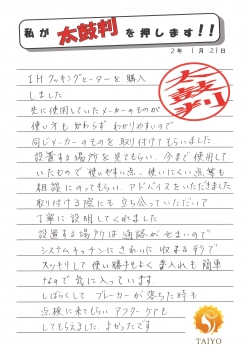 私が太鼓判を押します!!
2年 1月 21日
太鼓判
IHクッキングヒーターを購入
しました
先に使用していたメーカーのものが
使い方もかわらず わかりやすいので
同じメーカーのものを取り付けてもらいました
設置する場所を見てもらい、今まで使用して
いたもので使いやすい点、使いにくい点等も
相談にのってもらい、アドバイスをいただきました
取り付ける際にも立ち合っていただいて
丁寧に説明してくれました
設置する場所は通路がせまいので
システムキッチンにきれいに収まるタイプで
スッキリして使い勝手もよく手入れも簡単
なので気に入っています
しばらくしてブレーカーが落ちた時も
点検に来てもらい アフターケアも
してもらえました よかったです
TAIYO